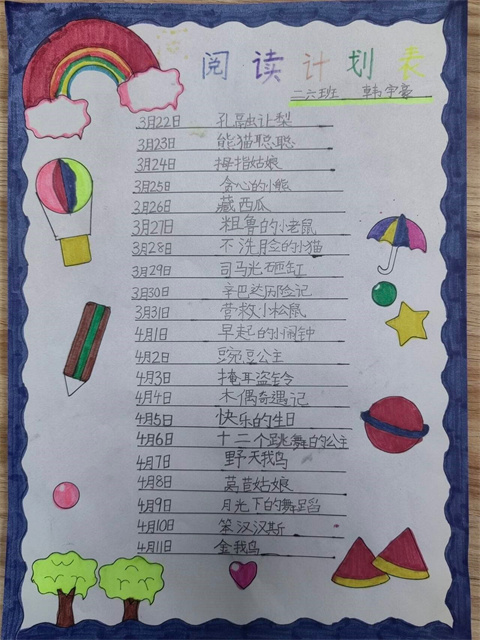 阅读计划表
二六班 韩宇
3月22日 孔融让梨
3月23日 熊猫聪聪
3月24日 拇指姑娘
3月25日 贪心的小熊
3月26日 藏西瓜
3月27日 粗鲁的小老鼠
3月28日 不洗脸的小猫
3月29日 司马光砸缸
3月30日 辛巴达历险记
3月31日 营救小松鼠
4月1日 早起的小闹钟
4月2日 豌豆公主
4月3日 掩耳盗铃
4月4日 木偶奇遇记
4月5日 快乐的生日
4月6日 十二个跳舞的公主
4月7日 野天我鸟
4月8日 莴苣姑娘
4月9日 月光下的舞蹈
4月10日 笨汉汉斯
4月11日 金我鸟